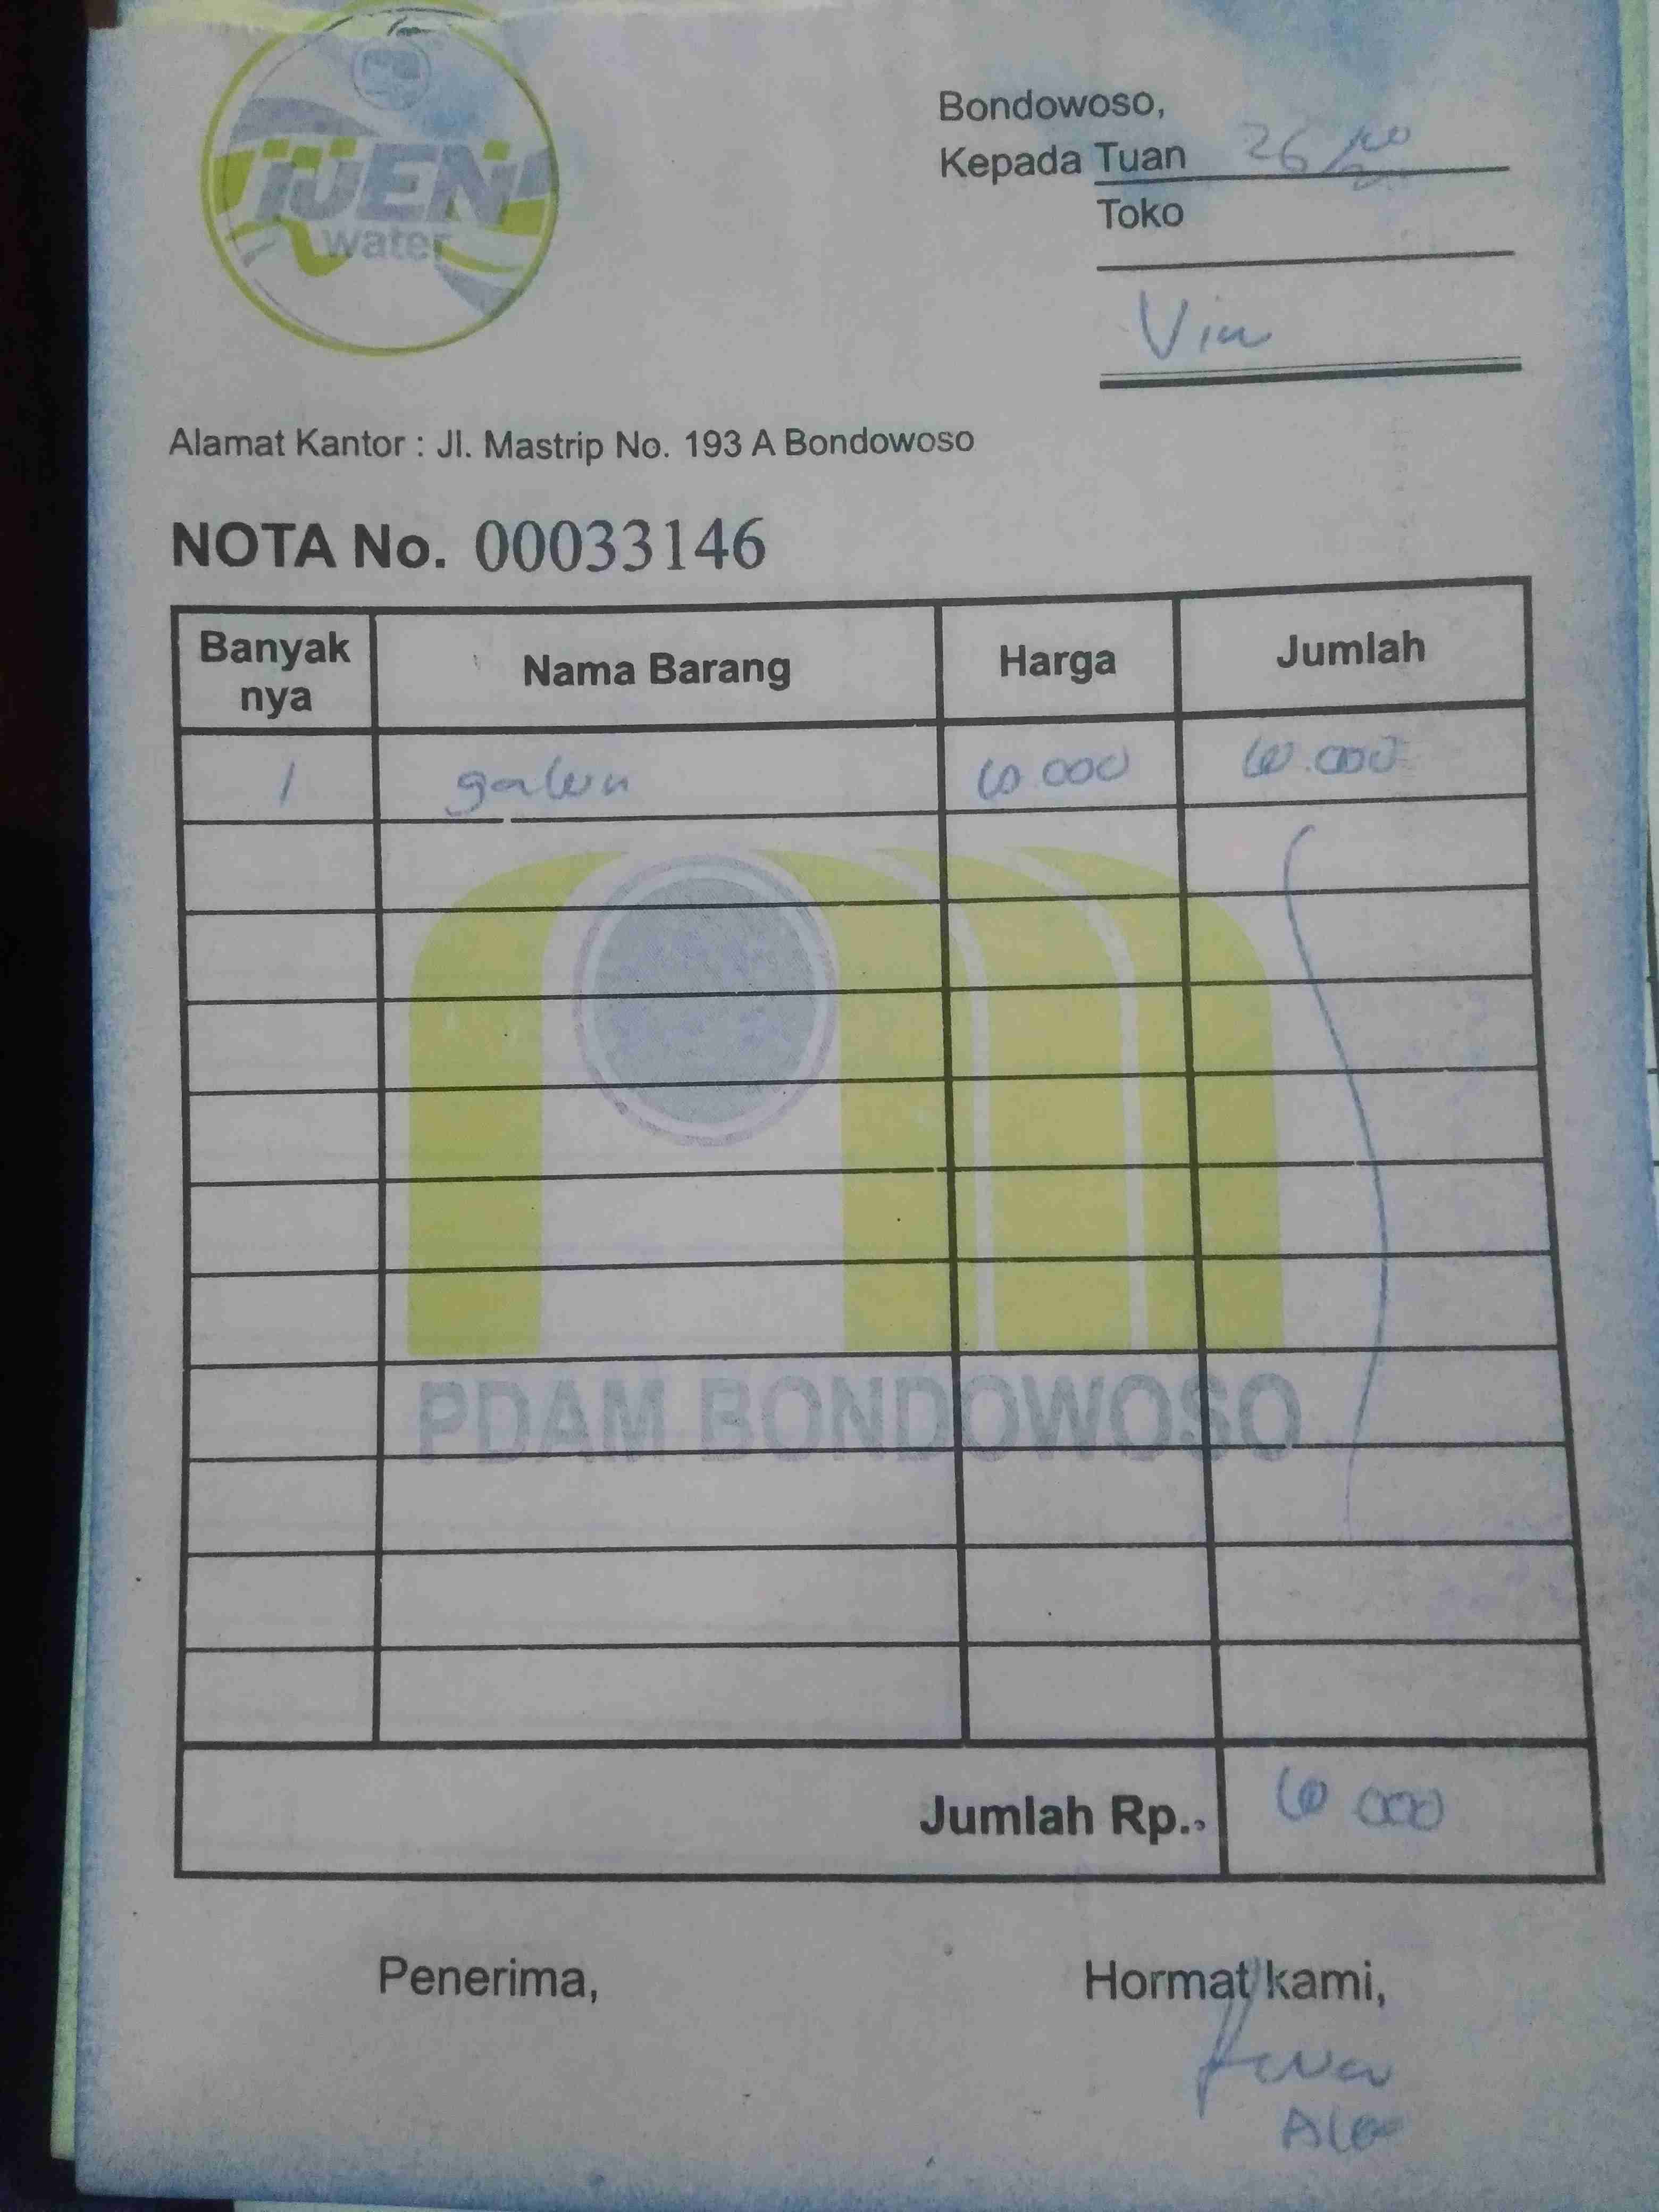 IJEN
water
Bondowoso,
Kepada Tuan 26
Toko
Via
Alamat Kantor : Jl. Mastrip No. 193 A Bondowoso
NOTA No. 00033146
Banyak nya Nama Barang Harga Jumlah
1 galon 60.000 60.000
PDAM BONDOWOSO
Jumlah Rp., 60.000
Penerima, Hormat kami,